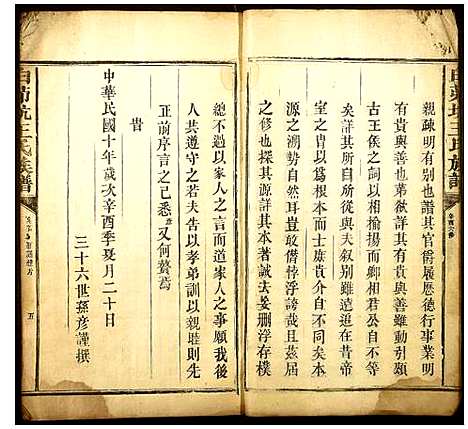 親疎有明別也譜其官爵履歷德行事業明
有貴與善也弟欲詳其有貴與善雖動引
古王侯以相揄揚而卿相君公自不等
矣詳其所自所從與夫叙別雖遠逰在昔帝
室之胄以爲根本而士庶貴介自不同矣本
源之溯勢自然耳豈敢僭悖浮于誇哉且茲届
詩修也探其源詳其本著誠去妄刪浮存樸
總不過以家人之言而道家人之事願我後
人共遵守之若夫告以孝弟訓以親睦則先
正前序言之已悉又何贅焉
旹
中華民國十年歲次辛酉季夏月二十日
三十六世孫彦謹撰
王氏族譜
五